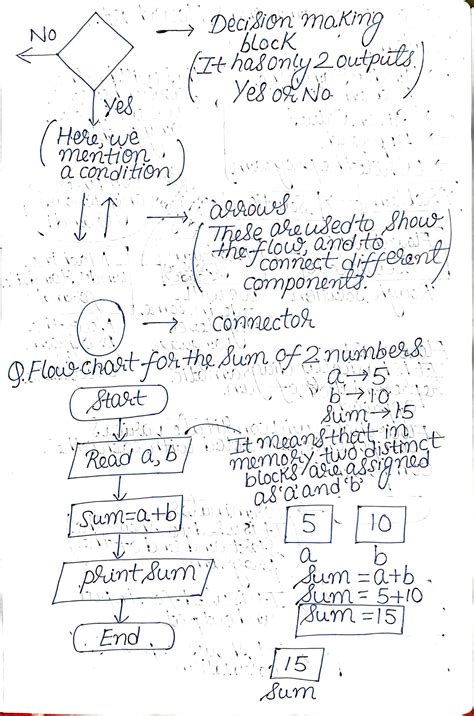 No
→ Decision making
block
(It has only 2 outputs
Yes or No)
Yes
(Here, we
mention
a condition)
→ arrows
(These are used to show
the flow, and to
connect different
components.)
→ connector
Q. Flow chart for the sum of 2 numbers
a → 5
b → 10
Sum → 15
Start
Read a, b
It means that in
memory two distinct
blocks are assigned
as 'a' and 'b'.
Sum=a+b
5 10
a b
print Sum
Sum = a+b
Sum = 5+10
Sum = 15
End
15
Sum